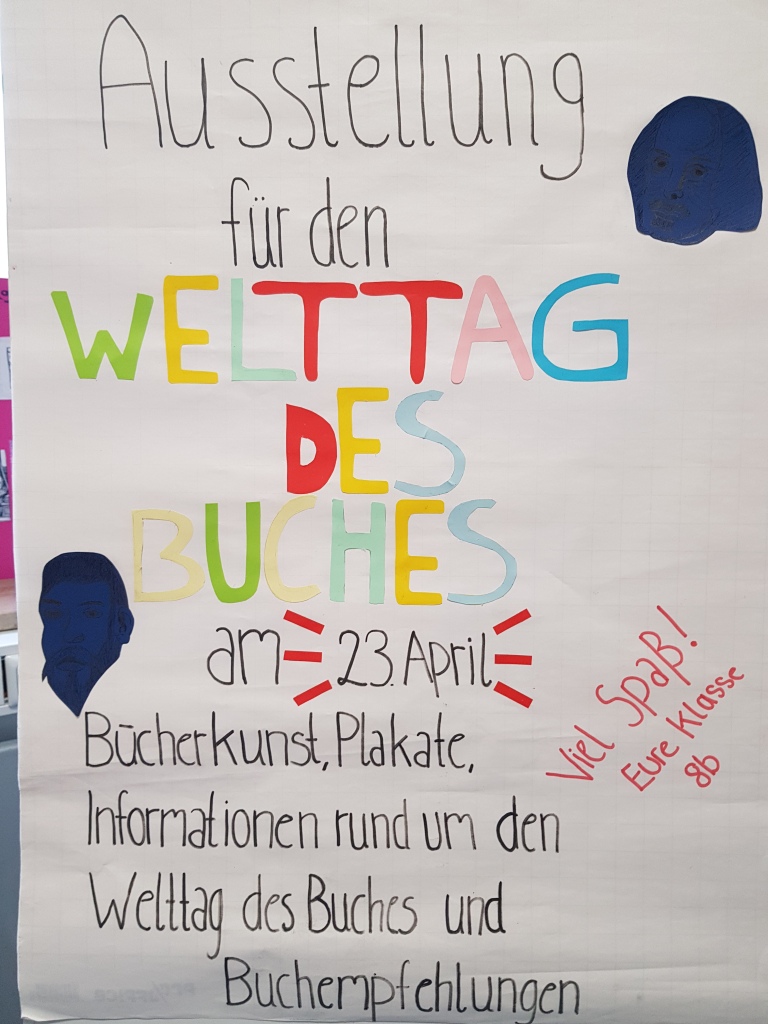 Ausstellung
für den
WELTTAG
DES
BUCHES
am 23. April
Bücherkunst, Plakate,
Informationen rund um den
Welttag des Buches und
Buchempfehlungen
Viel Spaß!
Eure Klasse
8b